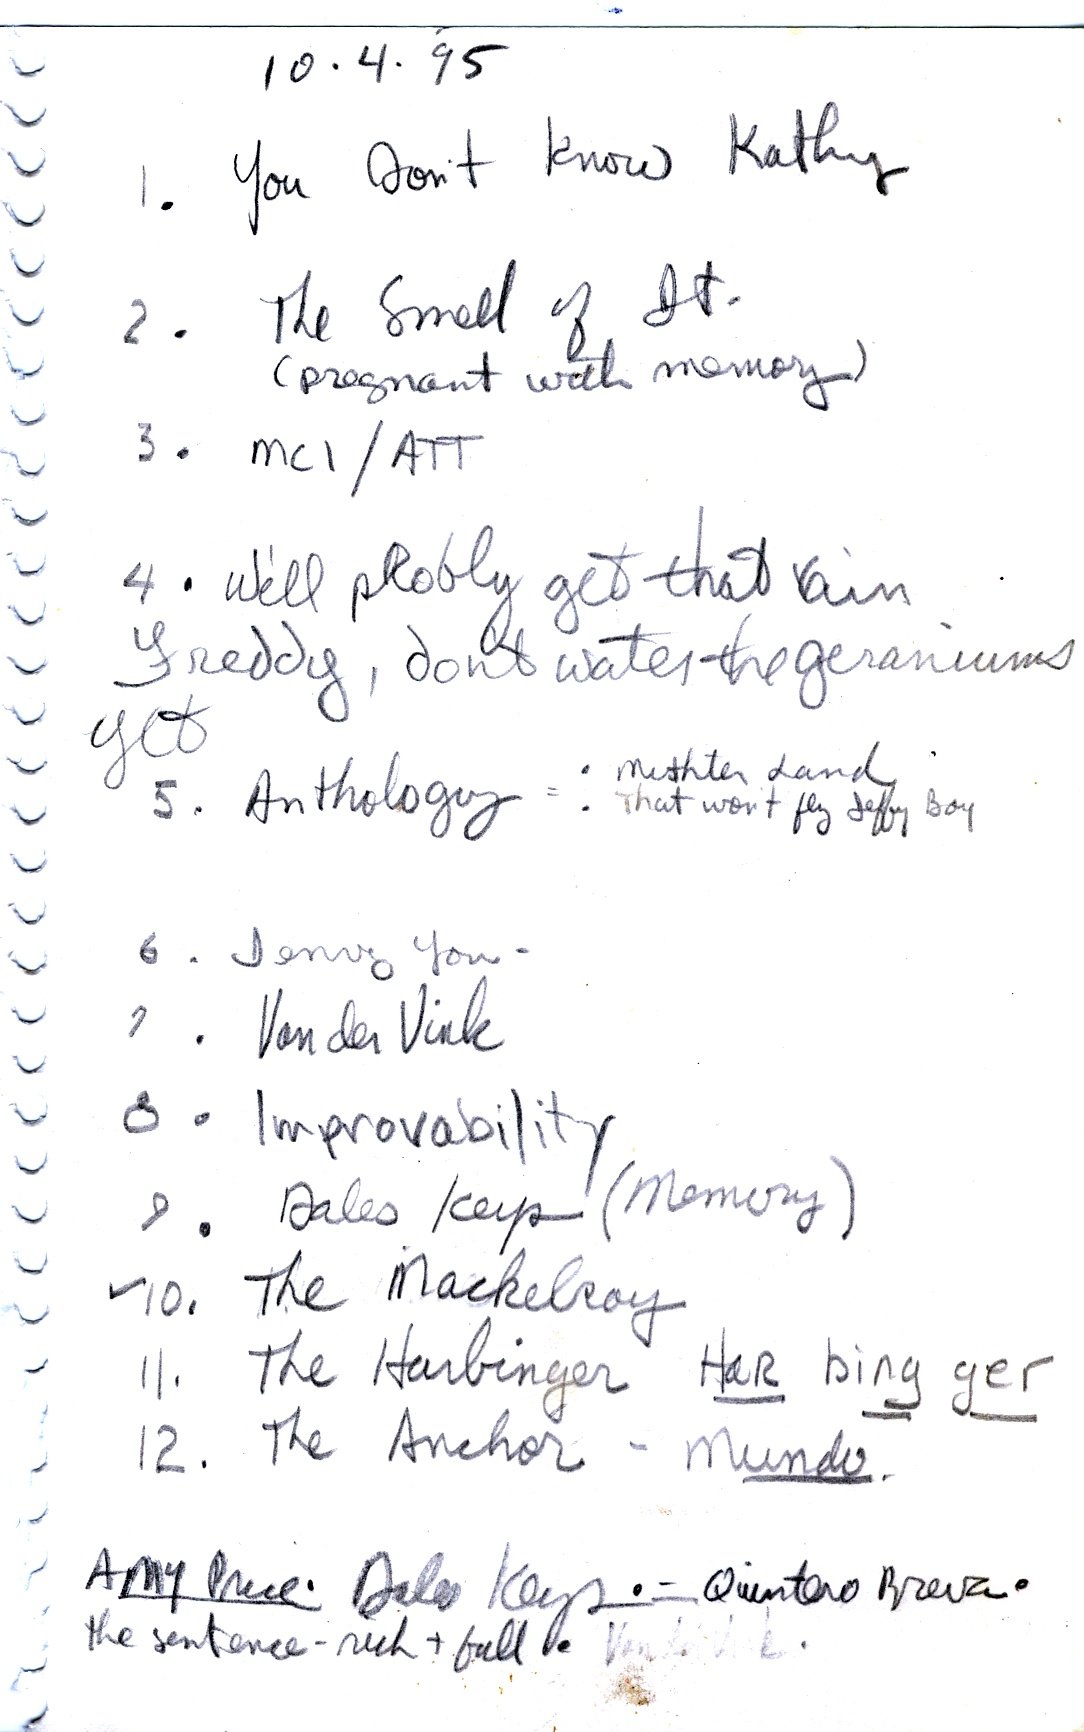 10.4.95
1. You Don't Know Kathy
2. The Smell of It.
(pregnant with memory)
3. MCI/ATT
4. We'll probly get that rain
Freddy, don't water the geraniums
yet
5. Anthology = : Mishter Land
: That won't fly Jeffy Boy
6. I envy You -
7. Van der Vink
8. Improvability
9. Dales Keys (Memory)
✓10. The Mackelroy
11. The Harbinger HAR bing ger
12. The Anchor - Mundo.
Amy Price. Dales Keys. = Quintero Breva.
the sentence - rich + full. Van der Vink.